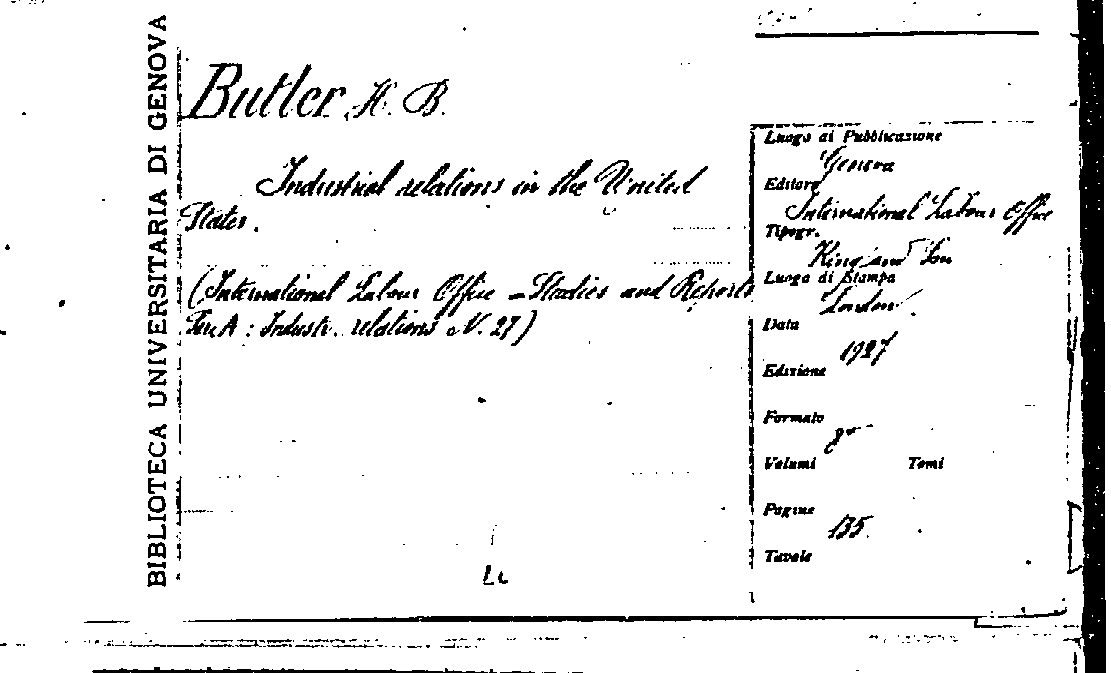 BIBLIOTECA UNIVERSITARIA DI GENOVA
Butler H. B.
Industrial relations in the United
States.
(International Labour Office - Studies and Reports
Ser. A : Industr. relations N. 27)
Luogo di Pubblicazione
Geneva
Editore
International Labour Office
Tipogr.
King and Son
Luogo di Stampa
London
Data
1927
Edizione
Formato
8°
Volumi Tomi
Pagine
135
Tavole